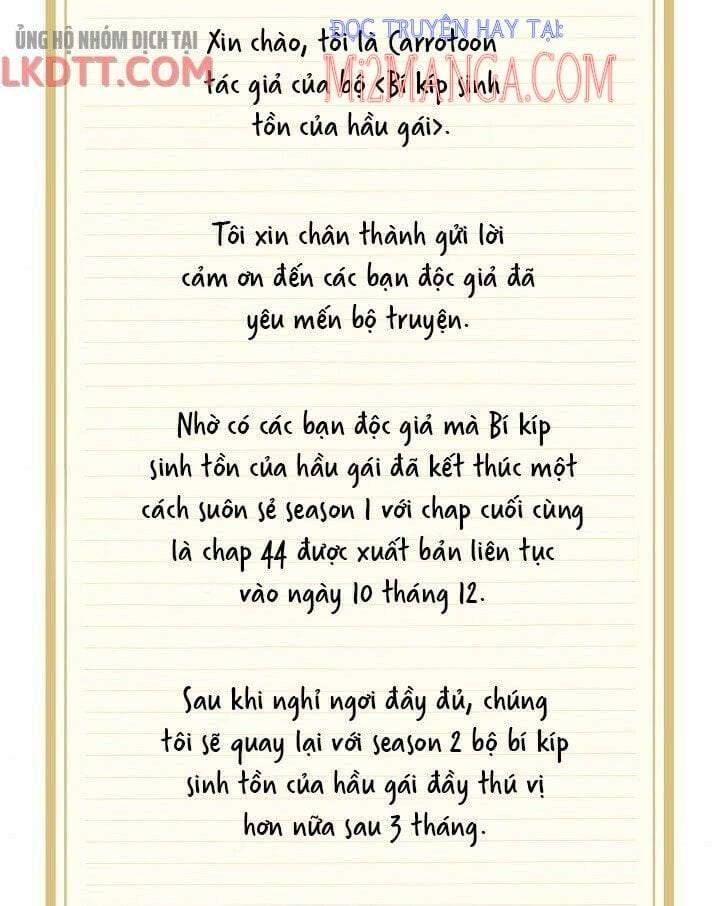 ỦNG HỘ NHÓM DỊCH TẠI
LKDTT.COM
ĐỌC TRUYỆN HAY TẠI:
Mi2MANGA.COM
Xin chào, tôi là Carrotoon
tác giả của bộ <Bí kíp sinh
tồn của hầu gái>.
Tôi xin chân thành gửi lời
cảm ơn đến các bạn độc giả đã
yêu mến bộ truyện.
Nhờ có các bạn độc giả mà Bí kíp
sinh tồn của hầu gái đã kết thúc một
cách suôn sẻ season 1 với chap cuối cùng
là chap 44 được xuất bản liên tục
vào ngày 10 tháng 12.
Sau khi nghỉ ngơi đầy đủ, chúng
tôi sẽ quay lại với season 2 bộ bí kíp
sinh tồn của hầu gái đầy thú vị
hơn nữa sau 3 tháng.